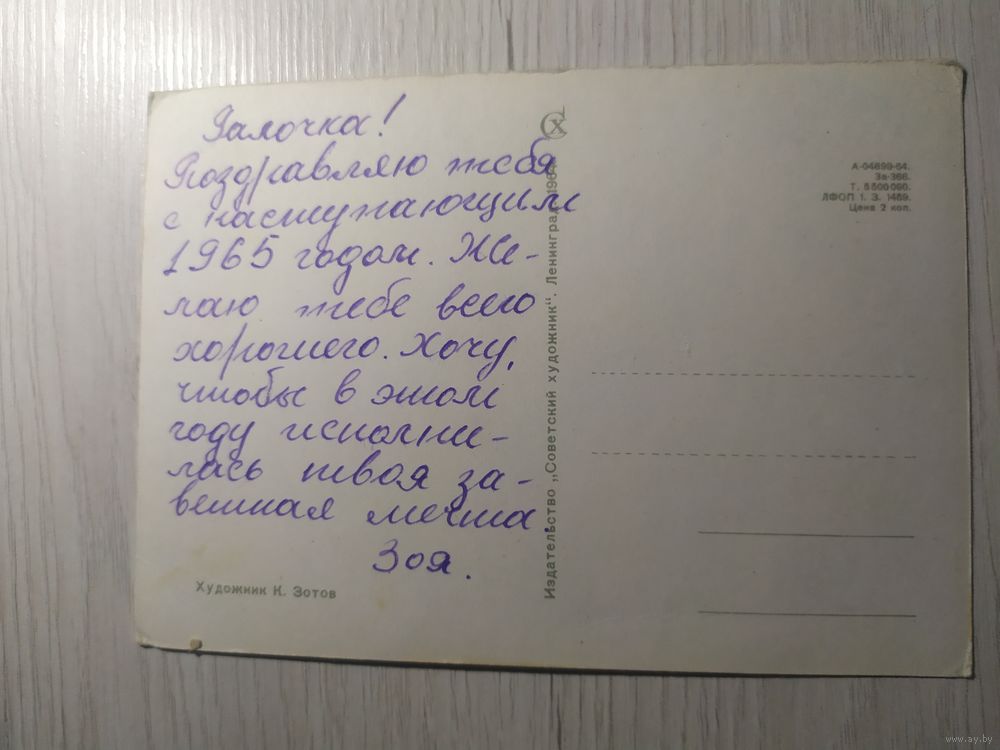 Галочка!
Поздравляю тебя
с наступающим
1965 годом. Же-
лаю тебе всего
хорошего. Хочу,
чтобы в этом
году исполни-
лась твоя за-
ветная мечта.
Зоя.
Художник К. Зотов
СХ
Издательство „Советский художник“. Ленинград.
А-04699-64.
За-366.
Т. 5500000.
ЛФОП 1. З. 1489.
Цена 2 коп.
www.ay.by